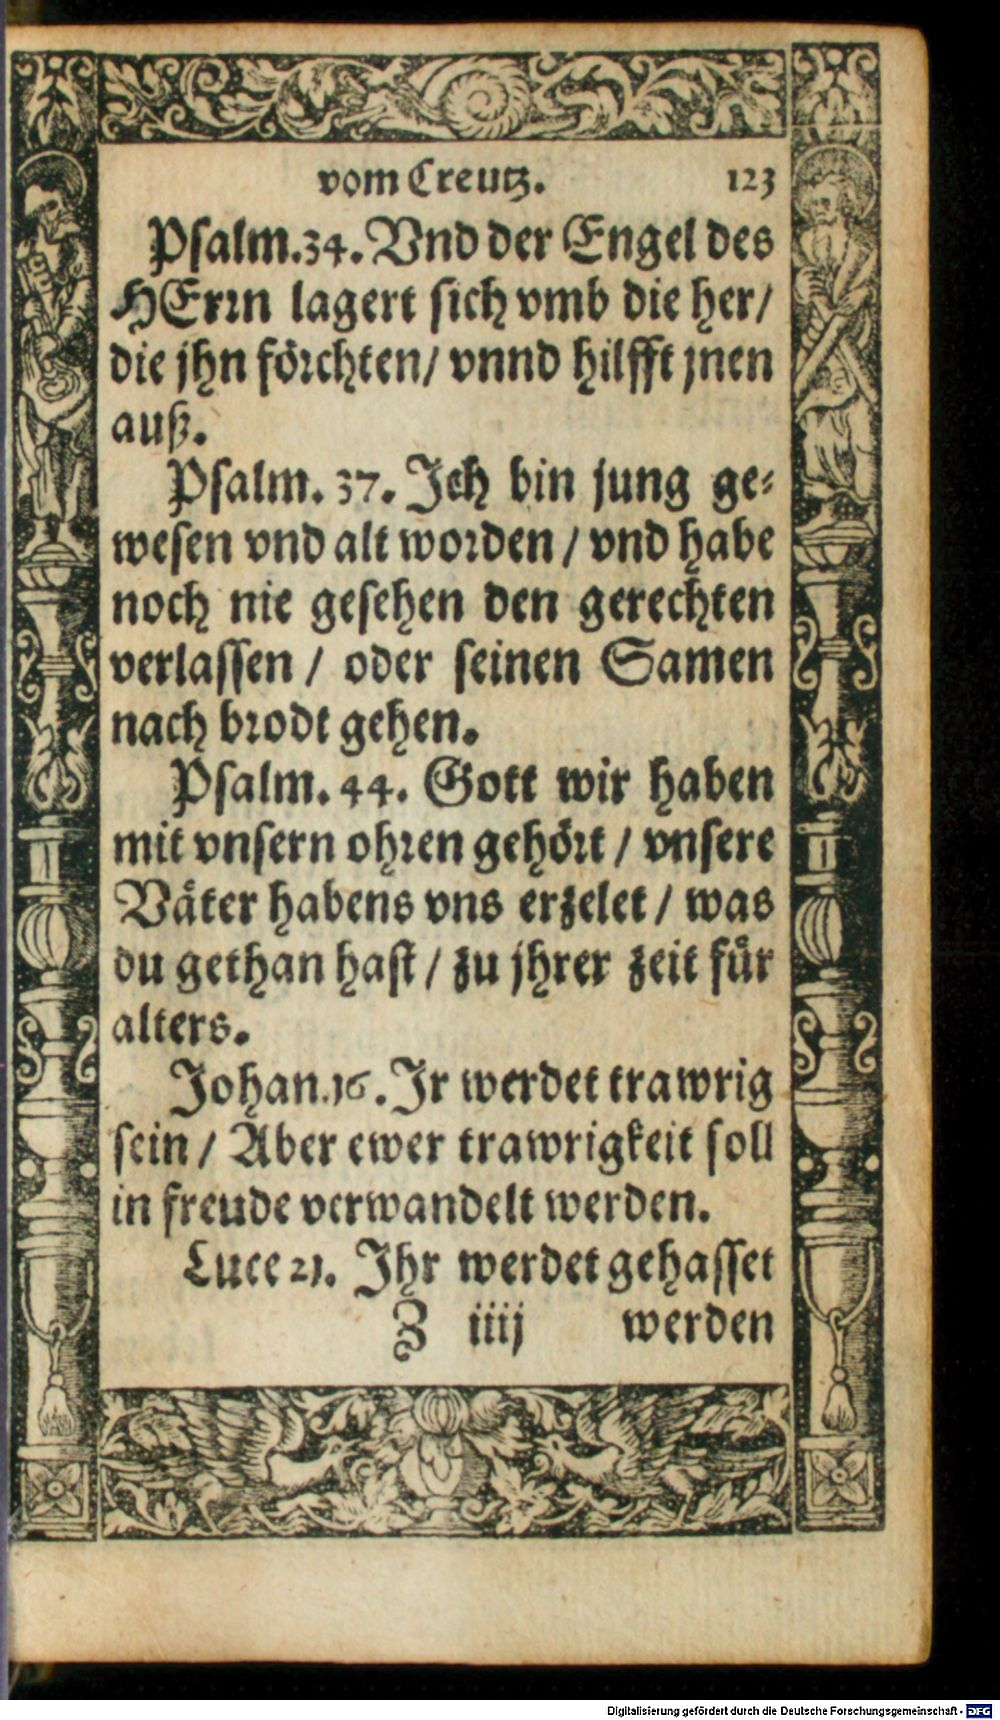 vom Creutz. 123
Psalm.34. Vnd der Engel des
HErrn lagert sich vmb die her/
die jhn förchten/ vnnd hilfft jnen
auß.
Psalm. 37. Ich bin jung ge-
wesen vnd alt worden / vnd habe
noch nie gesehen den gerechten
verlassen / oder seinen Samen
nach brodt gehen.
Psalm. 44. Gott wir haben
mit vnsern ohren gehört / vnsere
Väter habens vns erzelet / was
du gethan hast / zu jhrer zeit für
alters.
Johan.16. Ir werdet trawrig
sein / Aber ewer trawrigkeit soll
in freude verwandelt werden.
Luce 21. Ihr werdet gehasset
Z iiij werden
Digitalisierung gefördert durch die Deutsche Forschungsgemeinschaft - DFG